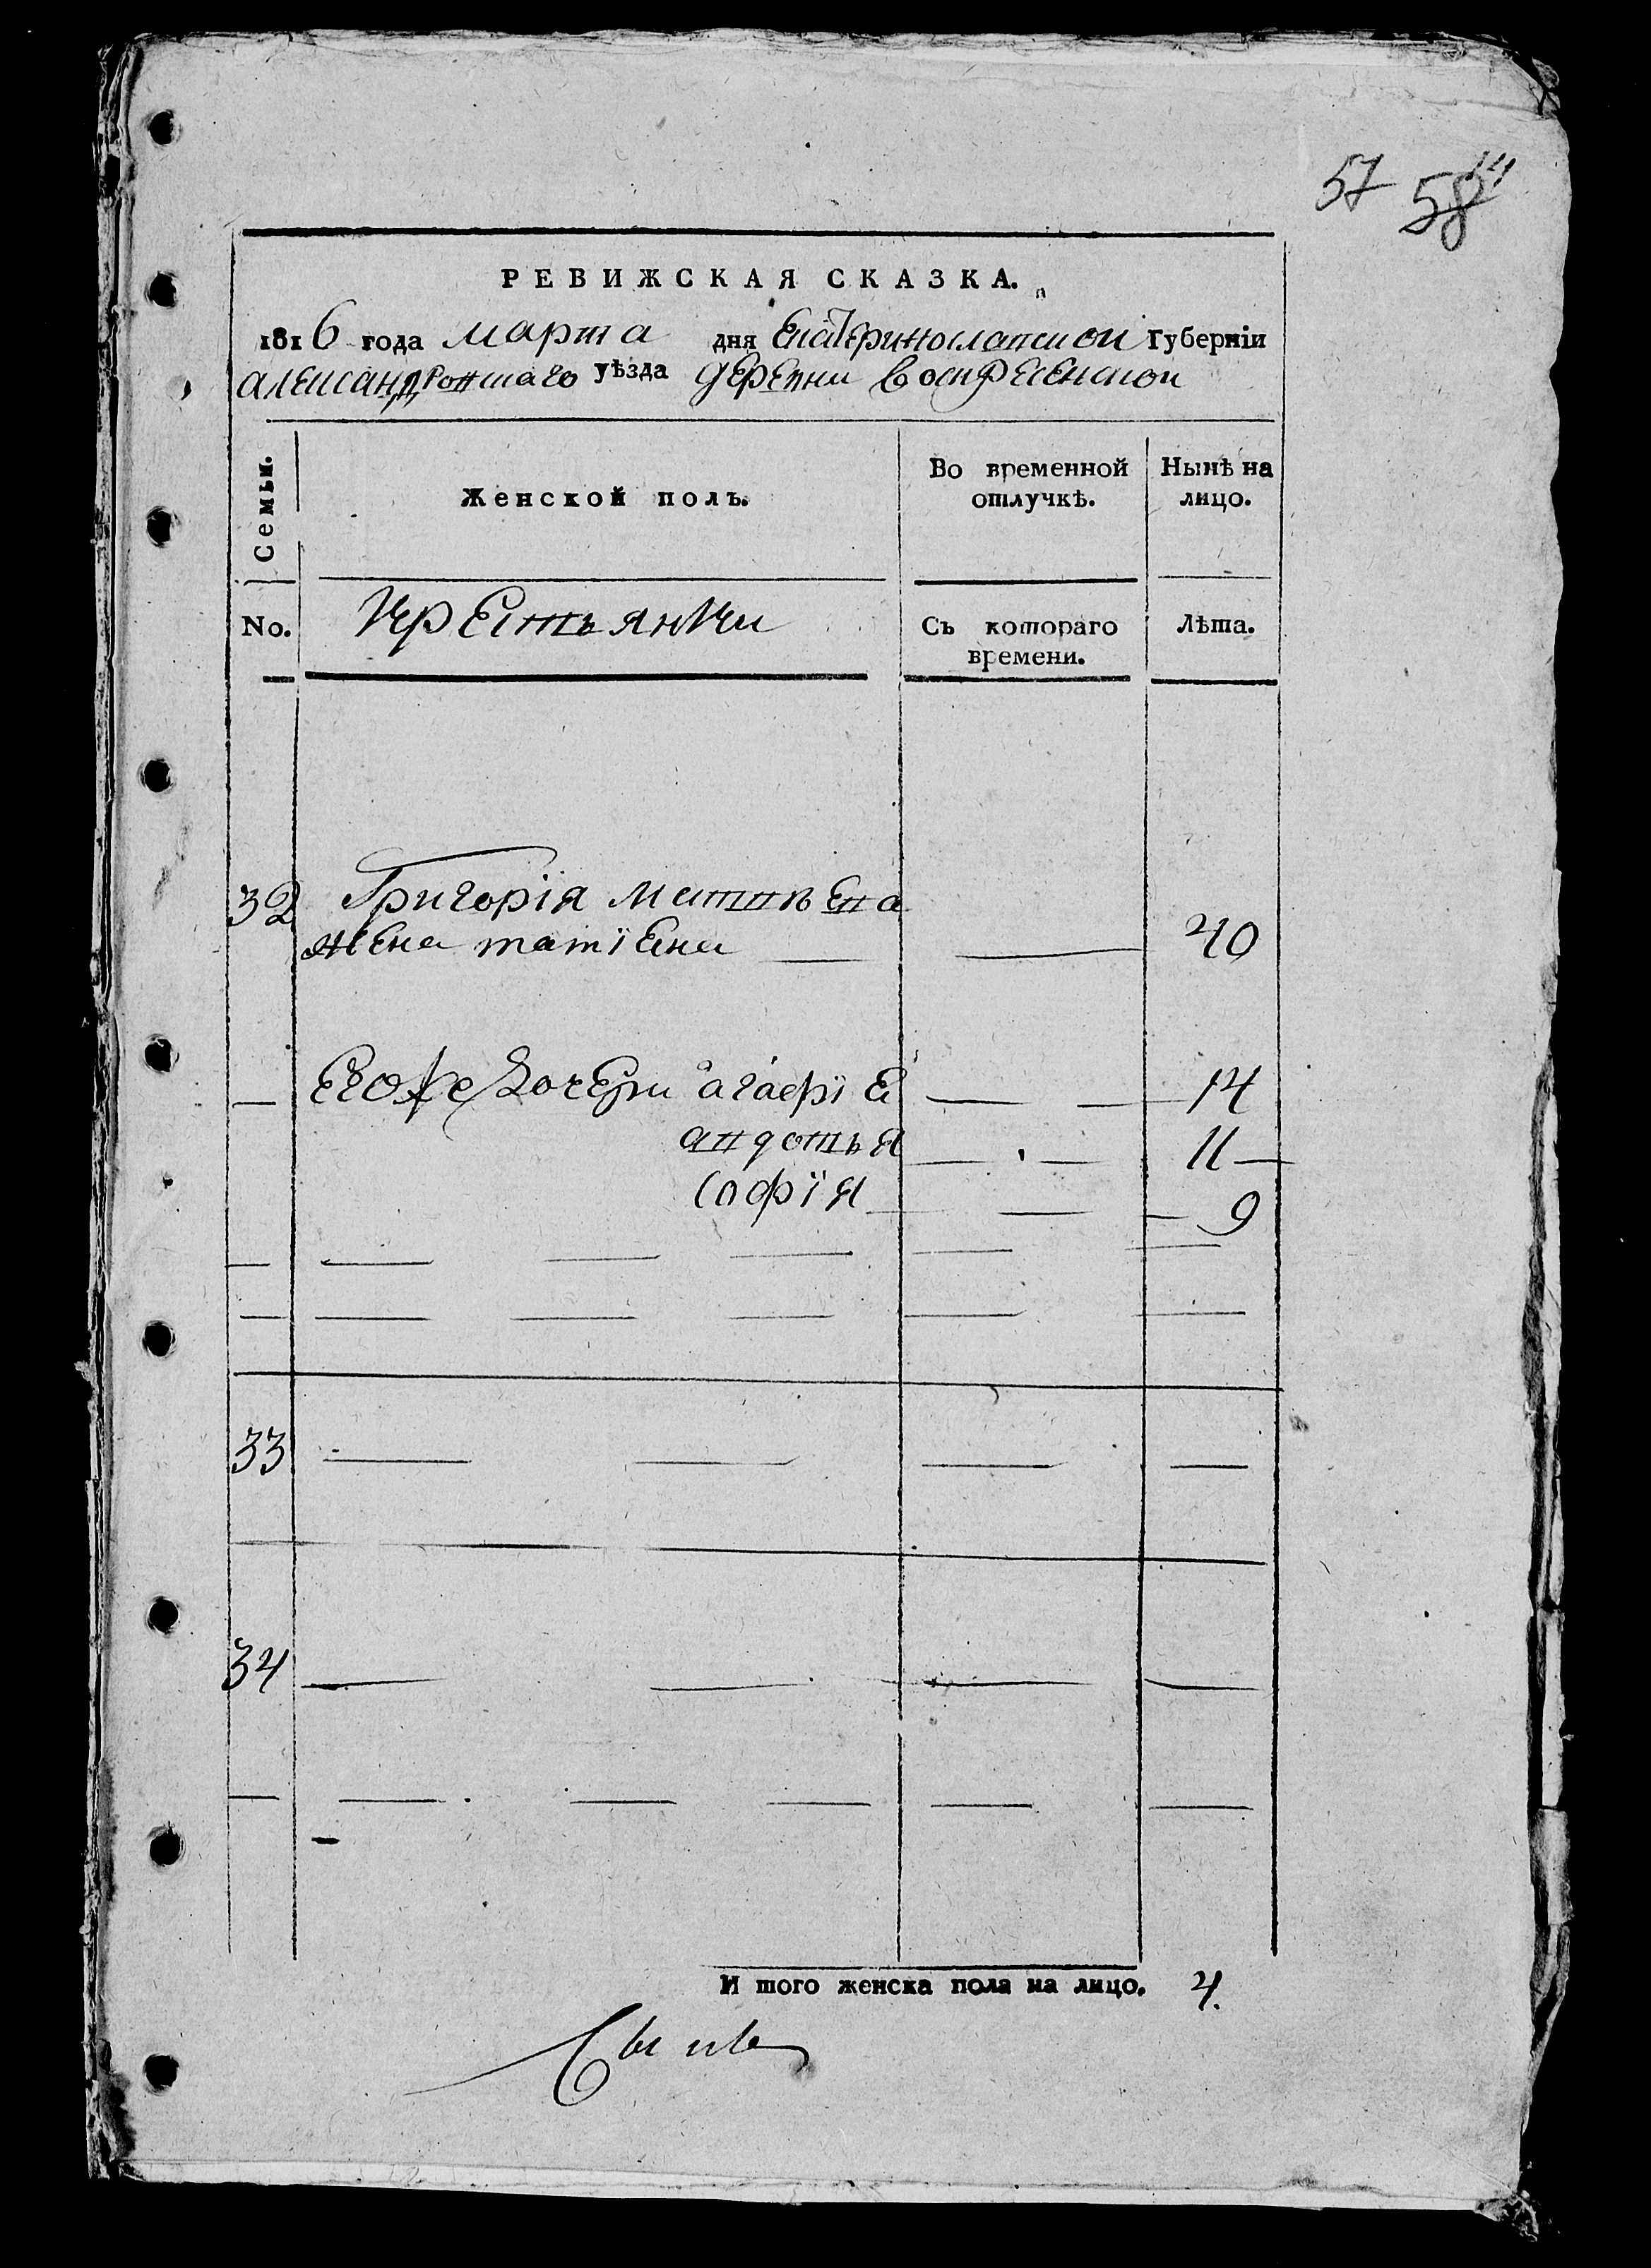 57 58
РЕВИЖСКАЯ СКАЗКА.
1816 года марта дня Екатеринославской Губерніи
александровскаго уѣзда деревни воскресенской
Семьи.
Женской полъ.
Во временной отлучкѣ.
Нынѣ на лицо.
No.
Крестьянки
Съ котораго времени.
Лѣта.
32 Григорія матвѣева
жена татіена 40
Егоже дочери агафіе 14
авдотья 11
софія 9
33
34
И того женска пола на лицо. 4.